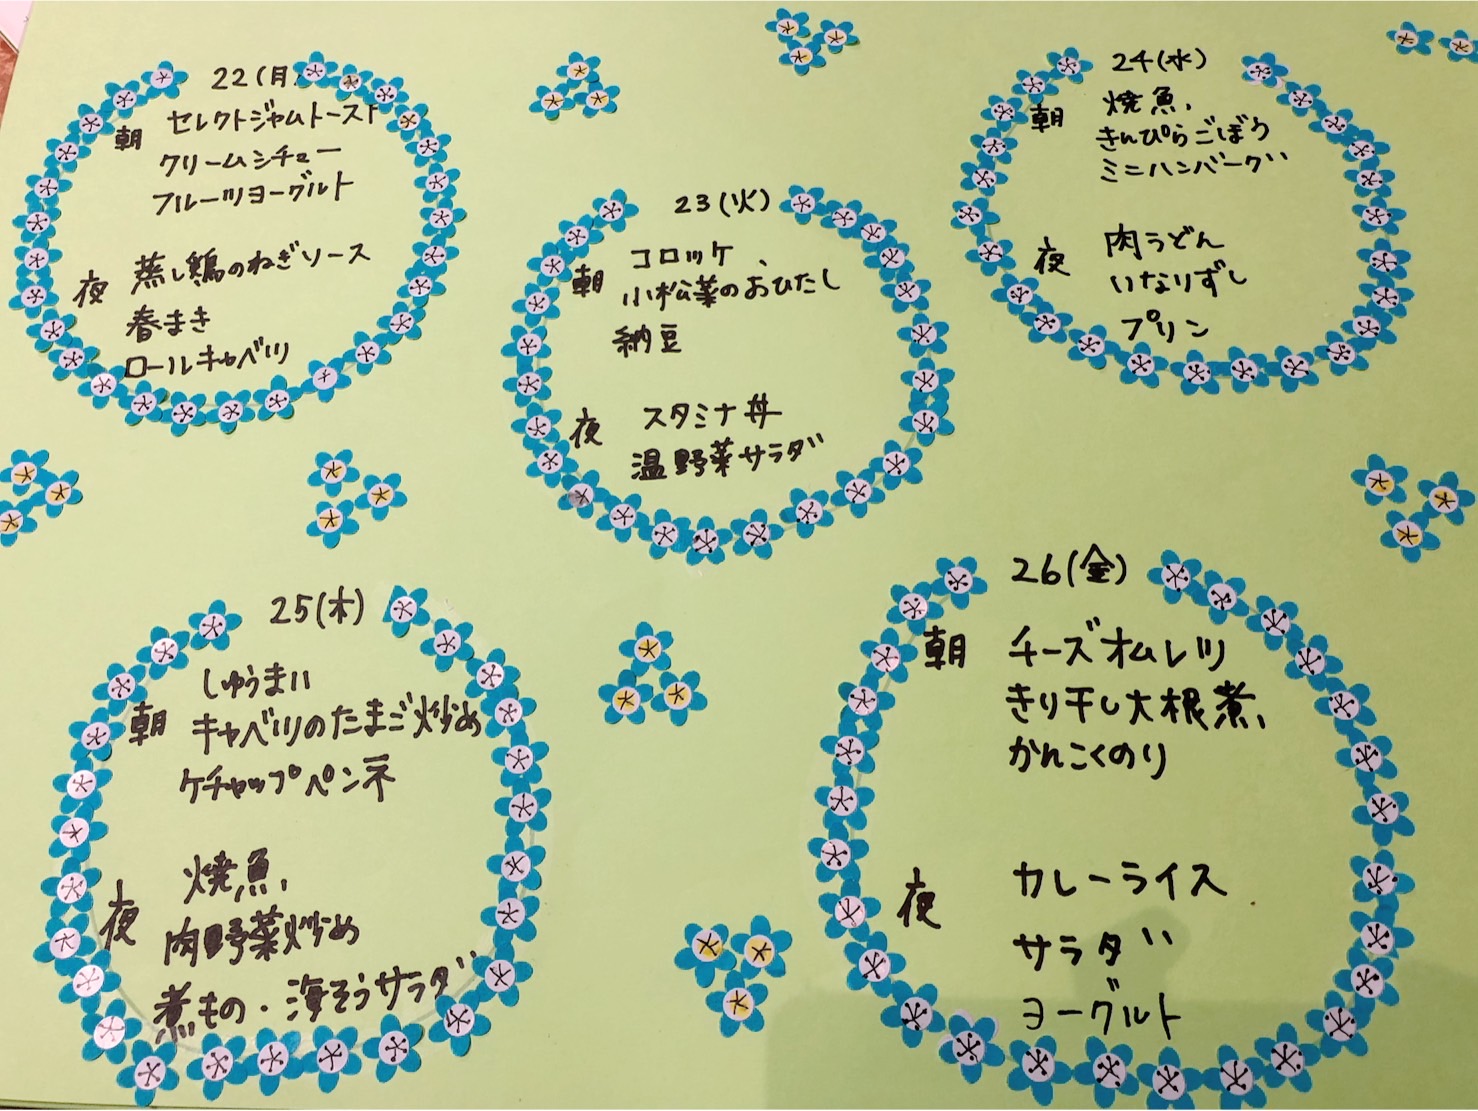 22(月)
朝 セレクトジャムトースト
クリームシチュー
フルーツヨーグルト
夜 蒸し鶏のねぎソース
春まき
ロールキャベツ
23(火)
朝 コロッケ、
小松菜のおひたし
納豆
夜 スタミナ丼
温野菜サラダ
24(水)
朝 焼魚、
きんぴらごぼう
ミニハンバーグ
夜 肉うどん
いなりずし
プリン
25(木)
朝 しゅうまい
キャベツのたまご炒め
ケチャップペンネ
夜 焼魚、
肉野菜炒め
煮もの・海そうサラダ
26(金)
朝 チーズオムレツ
きり干し大根煮、
かんこくのり
夜 カレーライス
サラダ
ヨーグルト